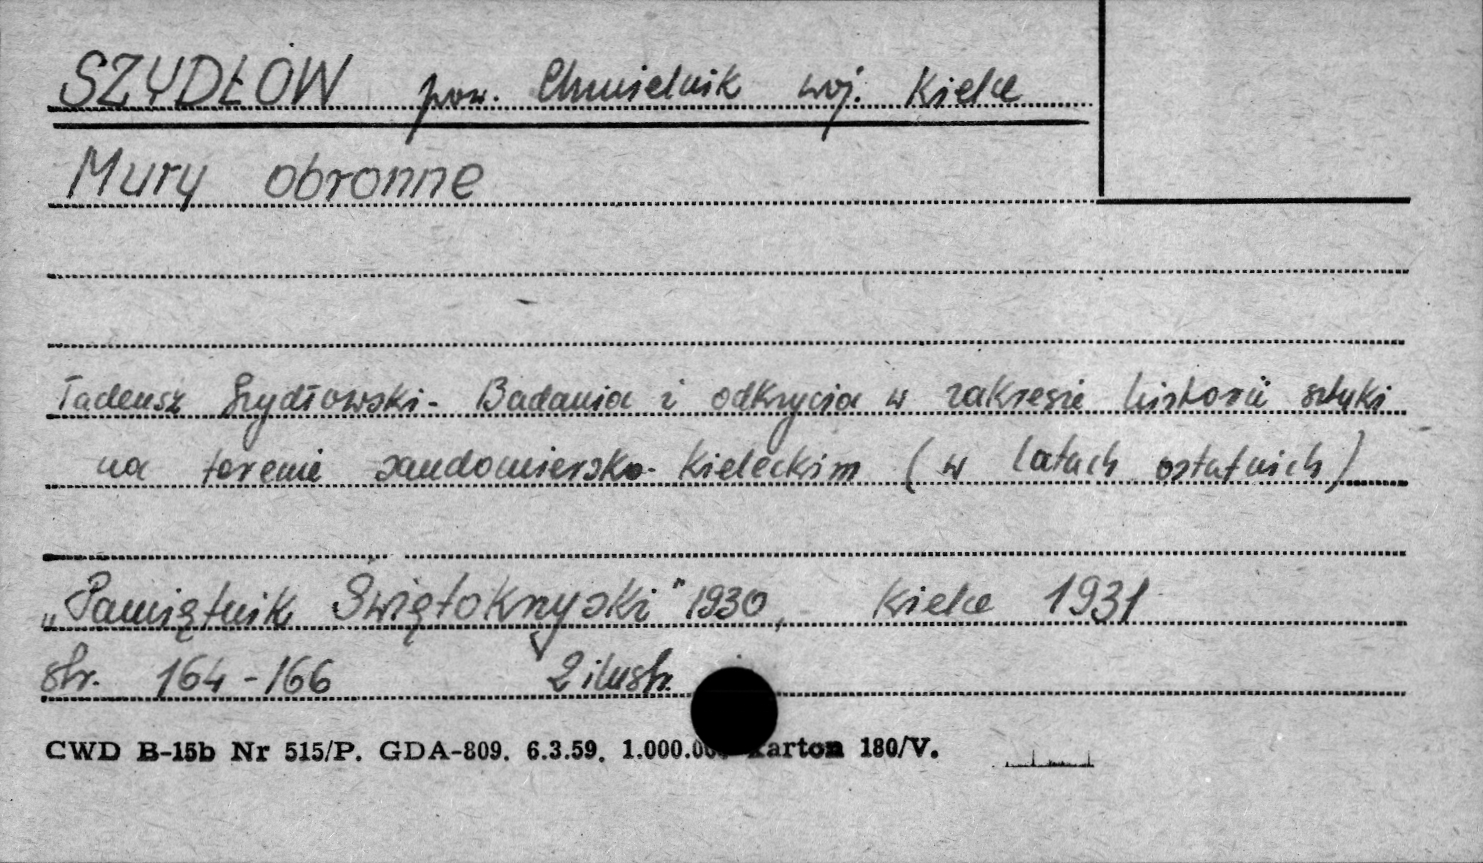 SZYDŁÓW pow. Chmielnik woj. Kielce
Mury obronne
Tadeusz Szydłowski - Badania i odkrycia w zakresie historii sztuki
na terenie sandomiersko-kieleckim (w latach ostatnich)
„Pamiętnik Świętokrzyski" 1930, Kielce 1931
str. 164-166 2 ilustr.
CWD B-15b Nr 515/P. GDA-809. 6.3.59. 1.000.00 Karton 180/V.